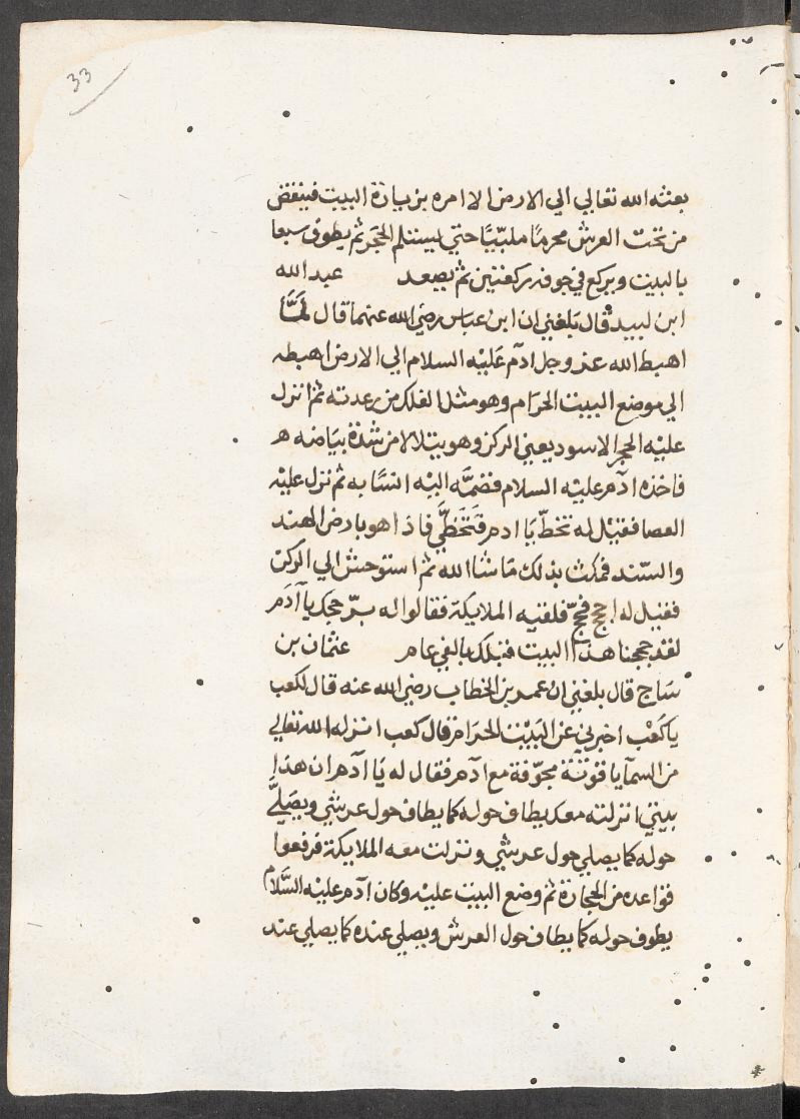 33
بعثه الله تعالي الي الارض الا امره بزيارة البيت فينقض
من تحت العرش محرمًا ملبّيًا حتي يستلم الحجَر ثم يطوف سبعا
بالبيت ويركع في جوفه ركعتين ثم يصعد عبد الله
ابن لبيد قال بَلغني ان ابن عباس رضي الله عنهما قال لمَّا
اهبط الله عز وجل ادٓم عَليْه السلام الي الارض اهبطه
الي موضع البيت الحرَام وهو مثل الفلك من رعدته ثم انزل
عليْه الحجر الاسود يعني الركن وهو يتلالا من شدّة بيَاضه ه
فاخذه ادٓم عليْه السلام فضمَّه اليْه انسًا به ثم نزل عليْه
العصا فقيْل له تخطّ يَا ادم فتَخَطَّي فاذا هو بارض الهند
والسّند فمكث بذلك مَا شا الله ثم استوحش الي الركن
فقيل له احجج فحجّ فلقيه الملايكة فقالوا له برّ حجك يا آدَم
لقد حججنا هذا البيت قبلك بالفي عام عثمان بن
سَاج قال بلغني ان عمر بن الخطاب رضي الله عنه قال لكعب
يا كَعْب اخبرني عن البَيْت الحرَام فقال كعب انزله الله تعالي
من السمآ ياقوتة مجوّفة مع ادٓم فقال له يَا ادٓم ان هذا
بيتي انزلته معك يطاف حوله كما يطاف حول عرشي ويصَليَّ
حوله كما يصلي حول عرشي ونزلت معه الملايكة فرفعوا
قواعده من الحجارة ثم وضع البيت عليْه وكان ادٓم عليْه السَّلام
يطوف حوله كما يطاف حول العرش ويصلي عنده كما يصلي عند